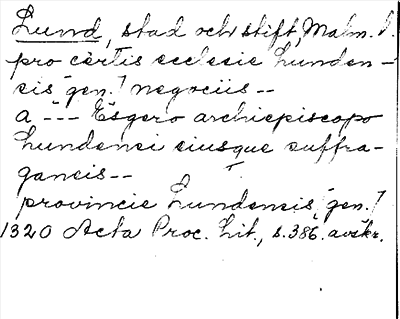 Lund, stad och stift, Malm. l.
pro certis ecclesie Lunden-
sis [gen.] negociis --
a --- Esgero archiepiscopo
Lundensi eiusque suffra-
ganeis --
provincie Lundensis [gen.]
1320 Acta Proc. Lit., s. 386. avskr.